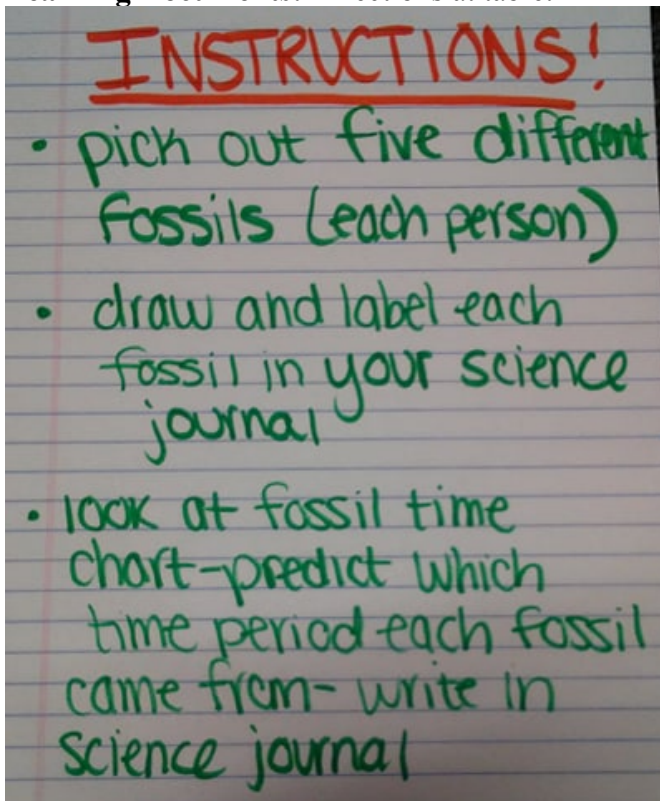 INSTRUCTIONS!
• pick out five different
fossils (each person)
• draw and label each
fossil in your science
journal
• look at fossil time
chart-predict which
time period each fossil
came from- write in
science journal